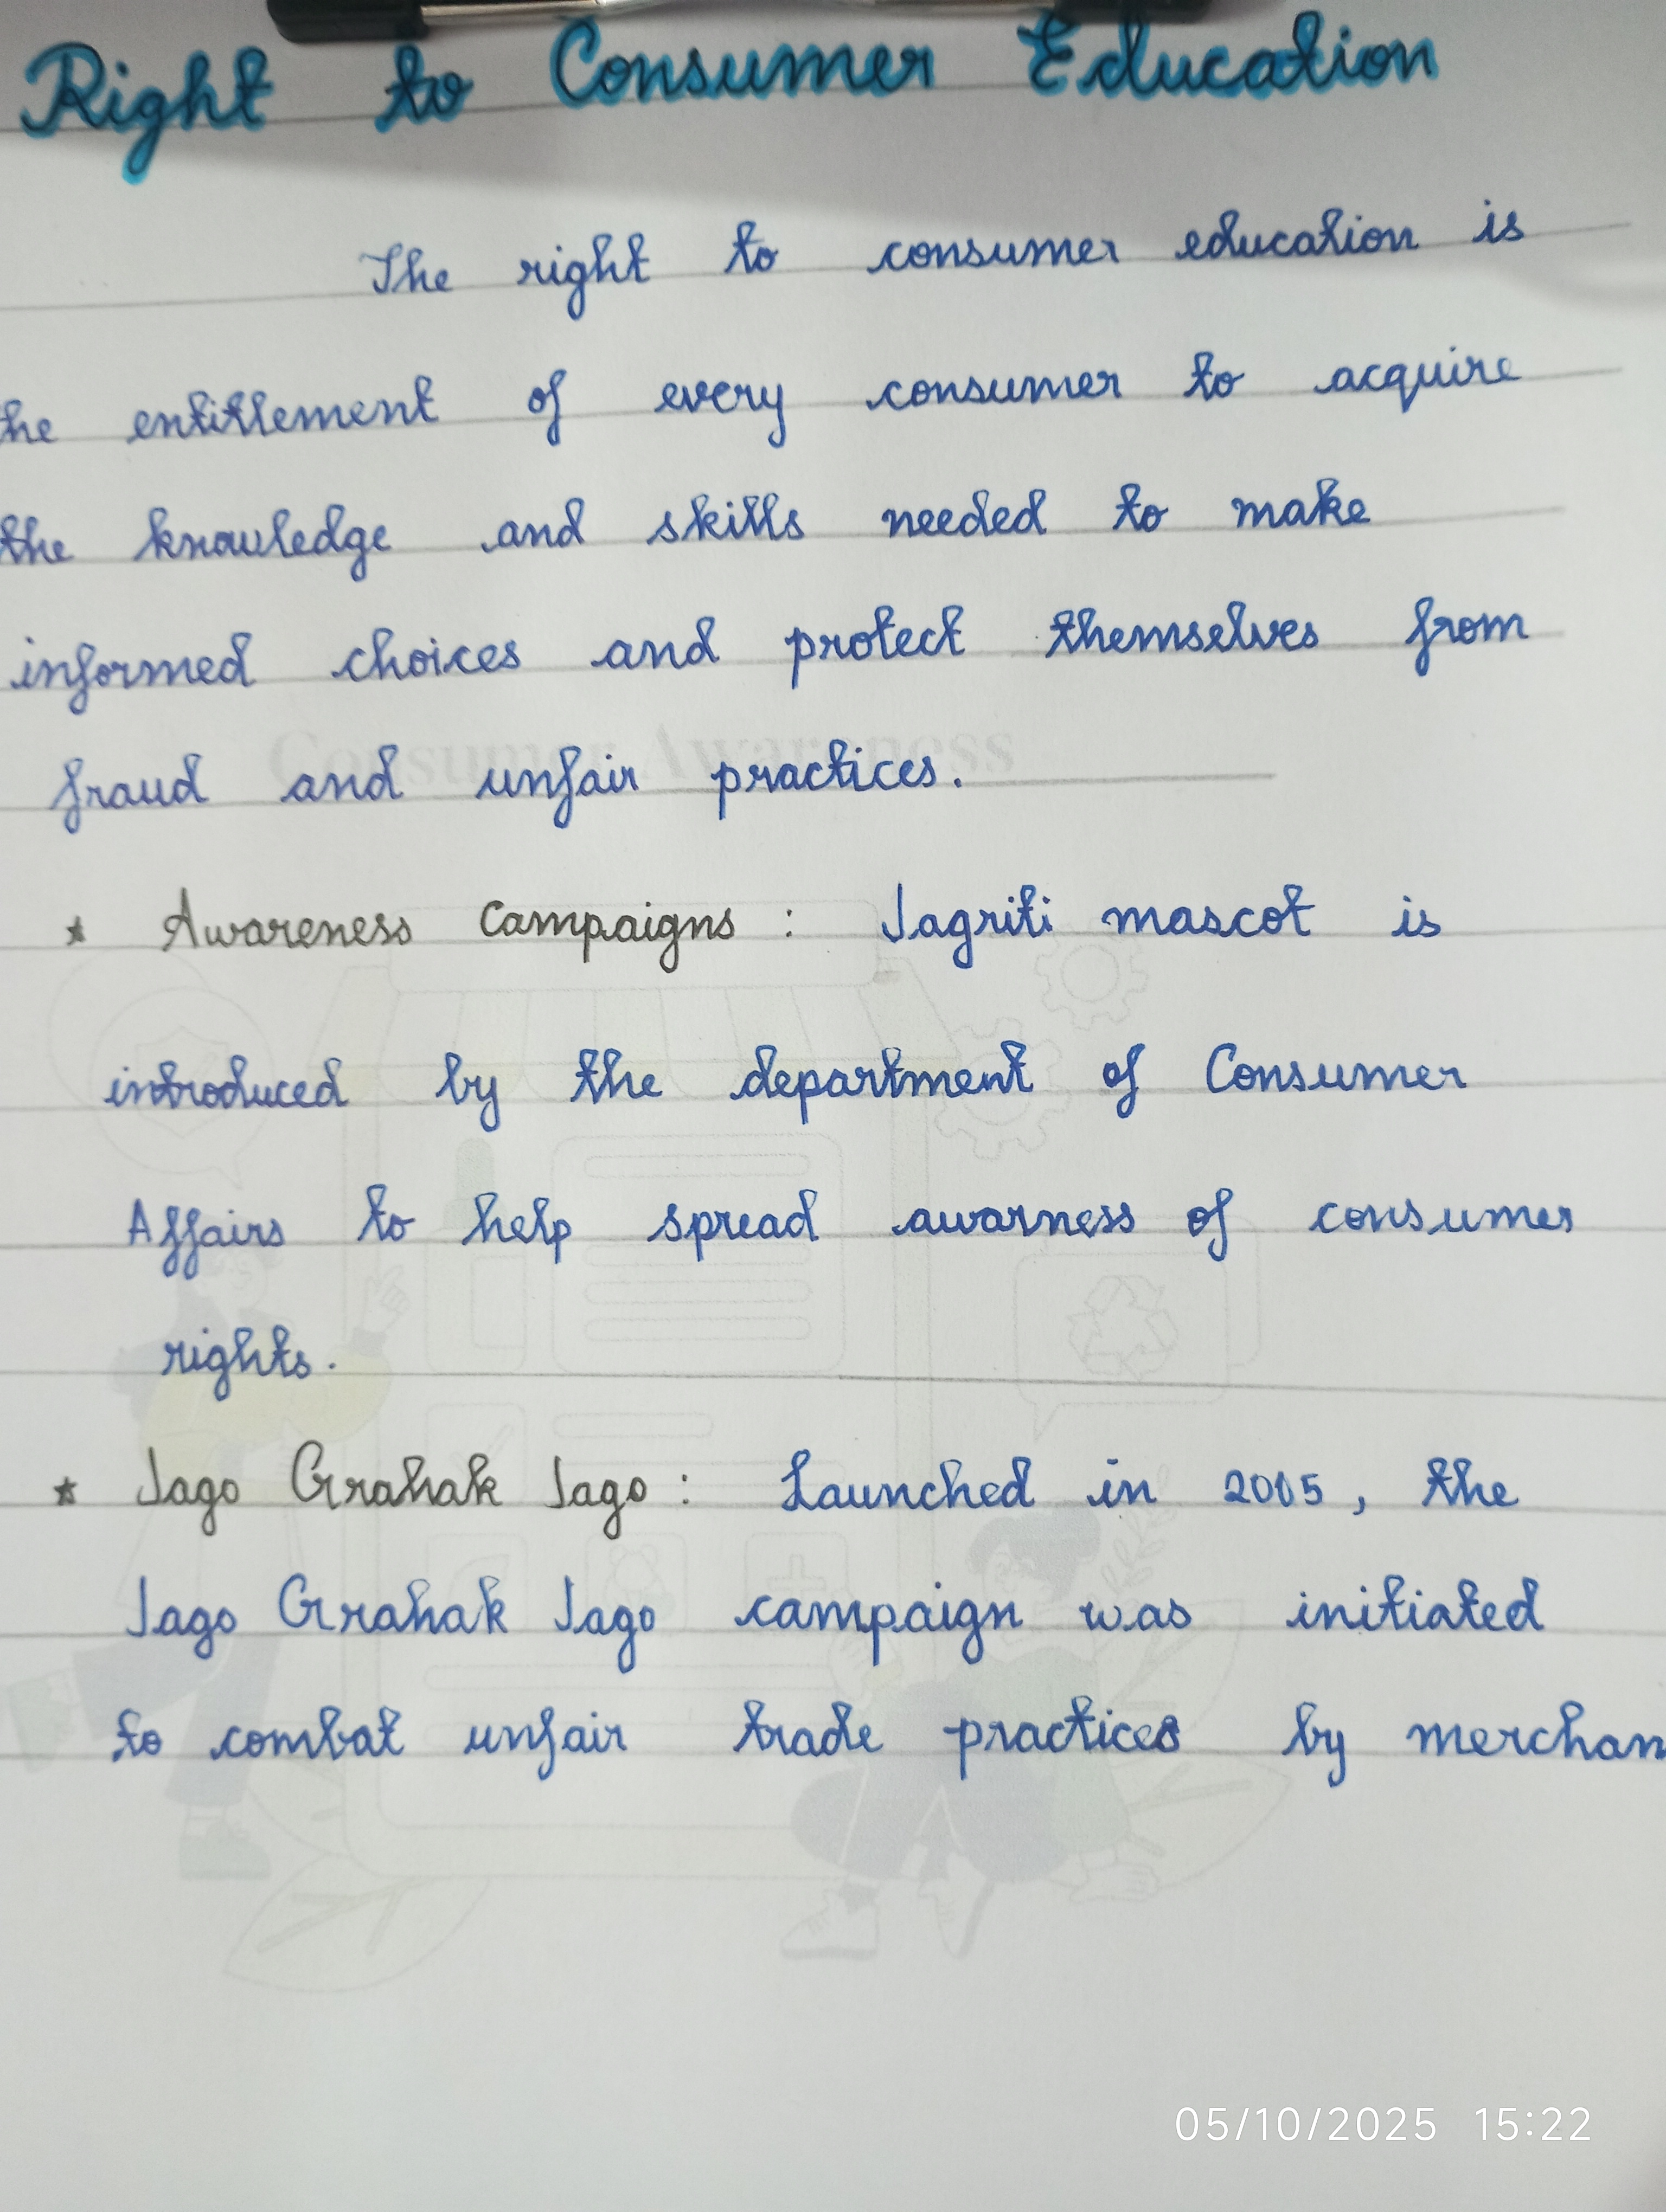 Right to Consumer Education
The right to consumer education is
he entitlement of every consumer to acquire
the knowledge and skills needed to make
informed choices and protect themselves from
fraud and unfair practices.
Consumer Awareness
* Awareness Campaigns : Jagriti mascot is
introduced by the department of Consumer
Affairs to help spread awarness of consumer
rights.
* Jago Grahak Jago : Launched in 2005, the
Jago Grahak Jago campaign was initiated
to combat unfair trade practices by merchan
05/10/2025 15:22